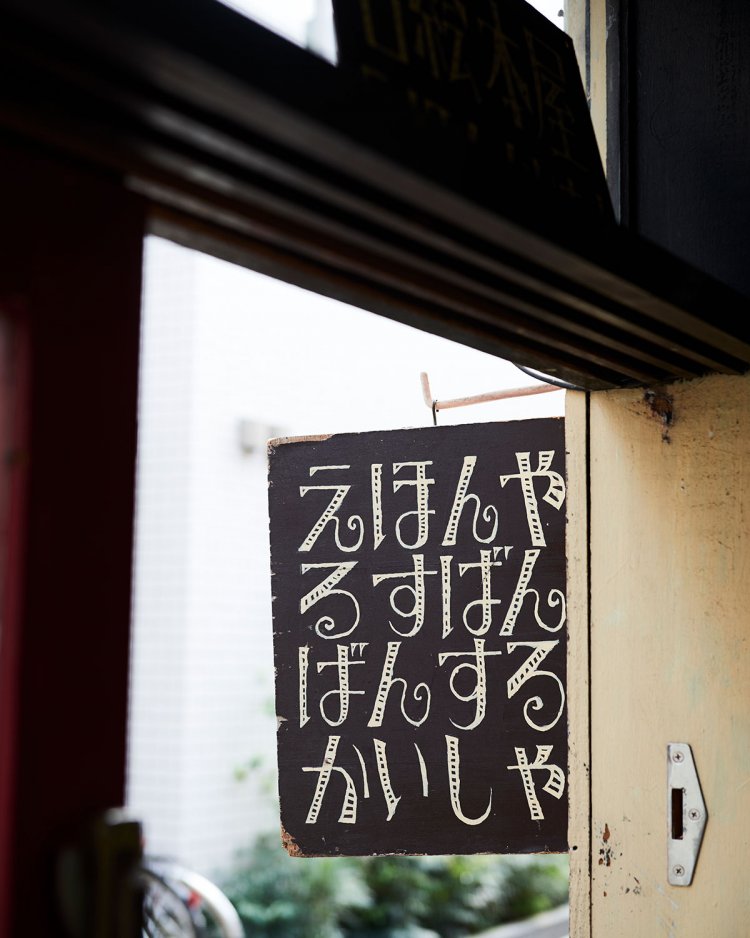 絵本屋
えほんや
るすばん
ばんする
かいしゃ